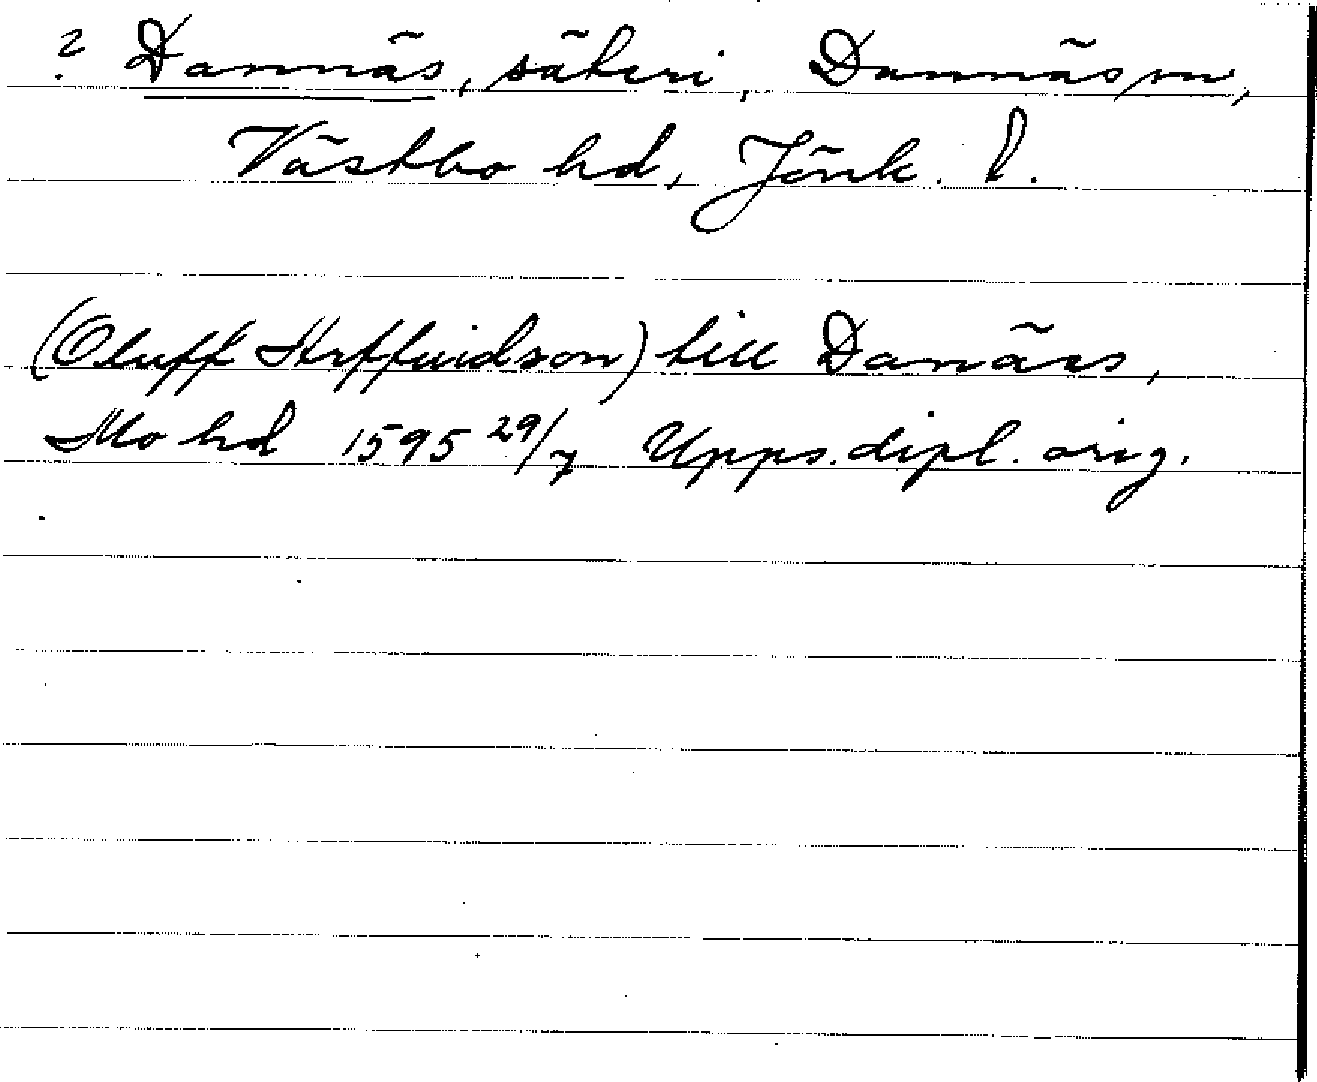 ? Dannäs, säteri, Dannäs sn,
Västbo hd, Jönk. l.
(Oluff ) till Danäss,
Mo hd 1595 29/7 Upps. dipl. orig.